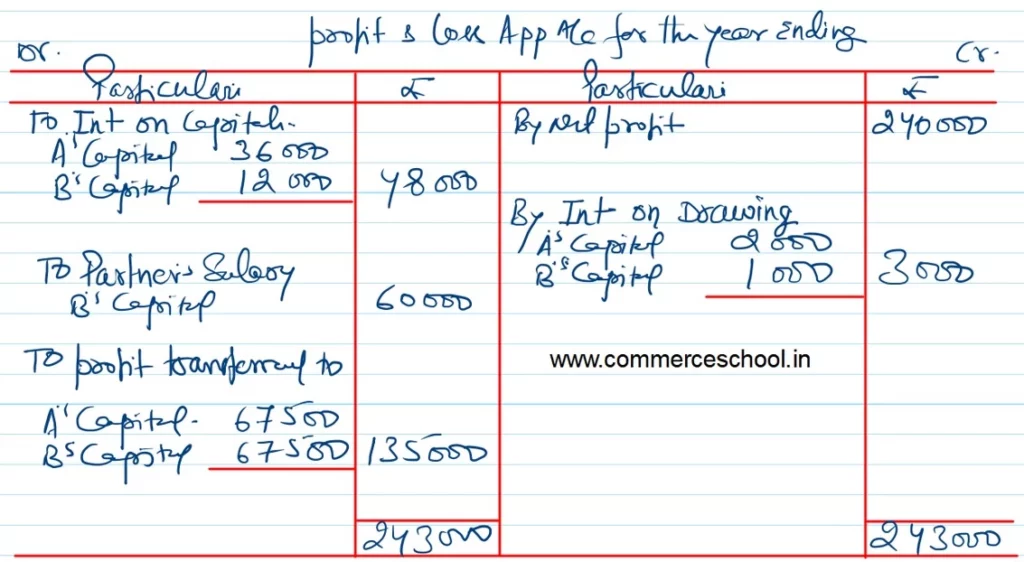 profit & Loss App A/c for the year Ending
Dr. Cr.
Particulars ₹ Particulars ₹
To Int on Capital. By Net profit 240000
A's Capital 36000
B's Capital 12000 48000
By Int on Drawing
A's Capital 2000
To Partner's Salary B's Capital 1000 3000
B's Capital 60000
To profit transferred to www.commerceschool.in
A's Capital. 67500
B's Capital 67500 135000
243000 243000